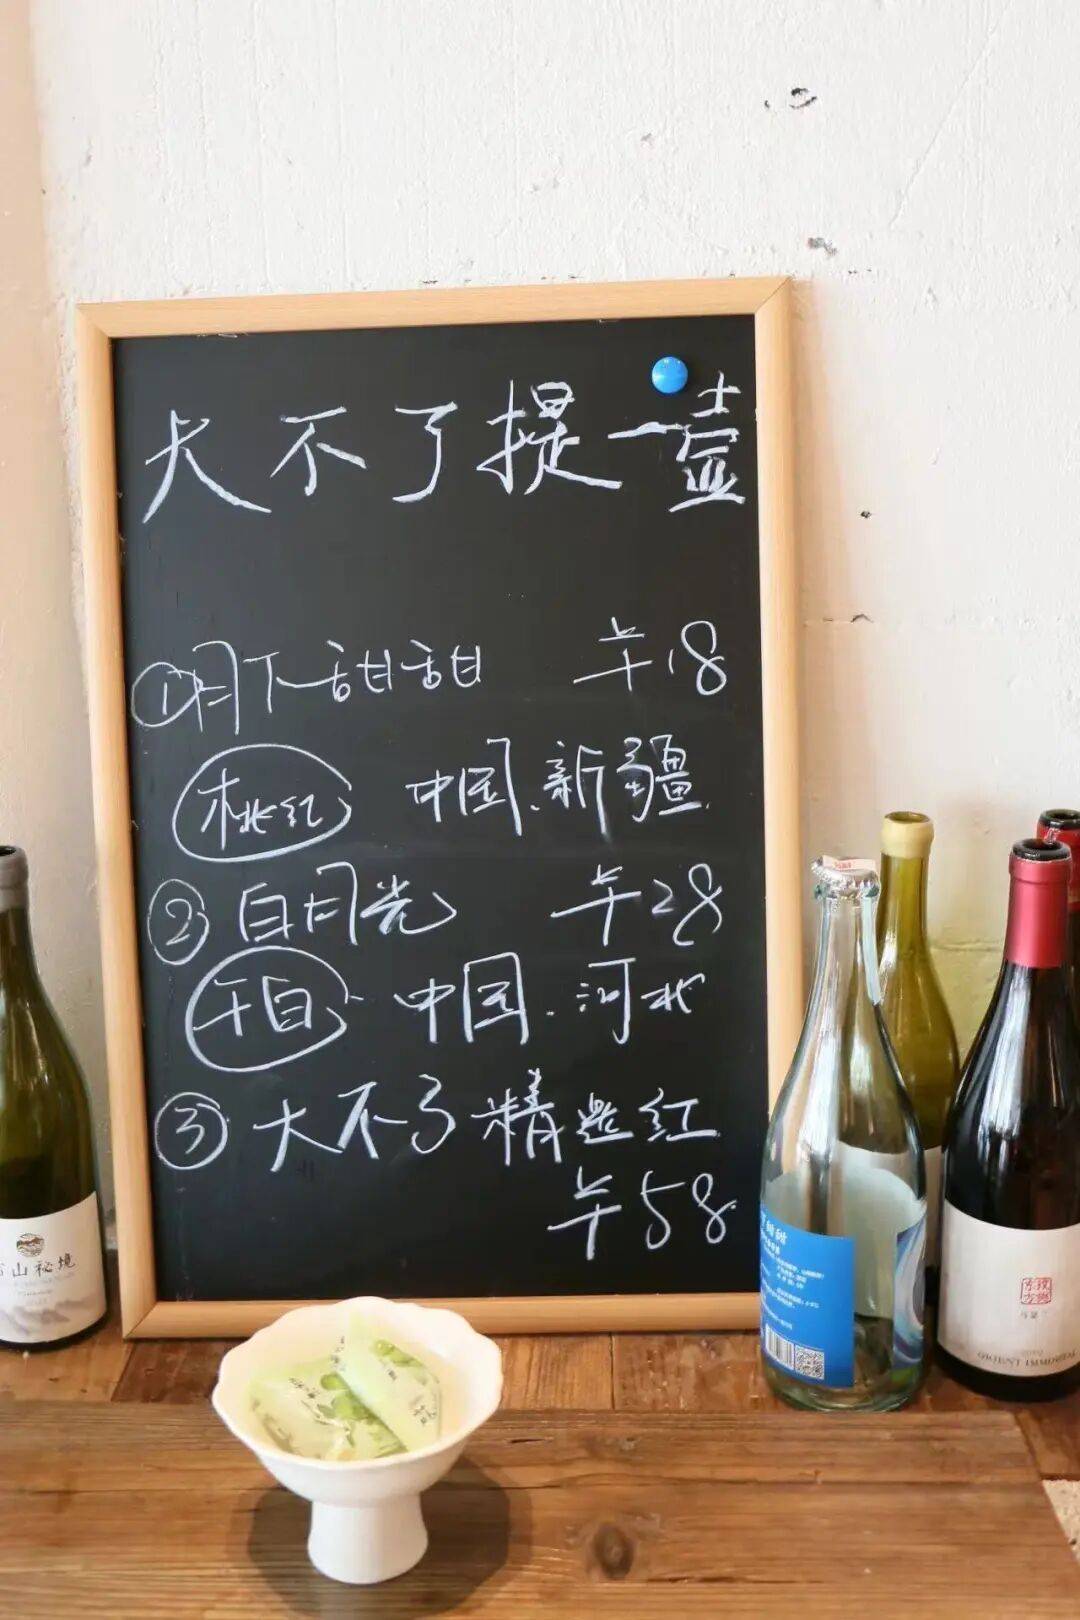 大不了提一壶
①月下甜甜 ¥18
桃红 中国.新疆
②白月光 ¥28
干白 中国.河北
③大不了精选红
¥58
山秘境
甜甜
东方
ORIENT IMMORTAL